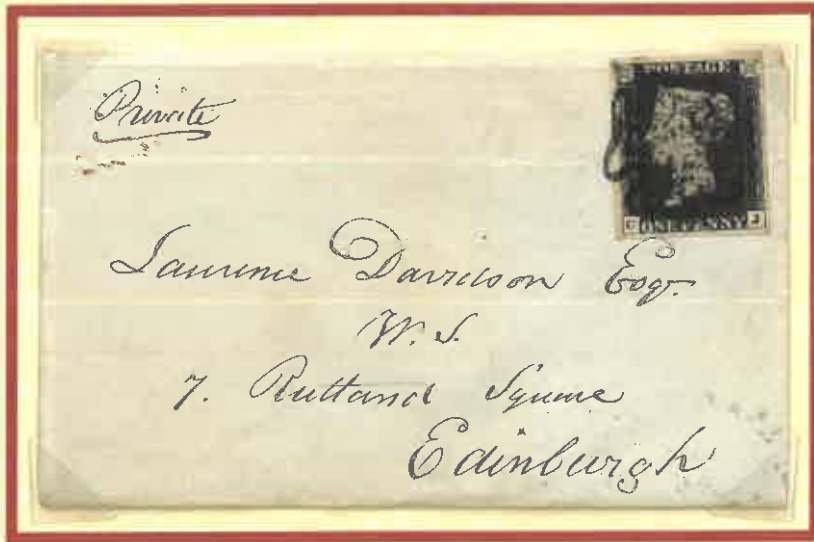 Private
POSTAGE
ONE PENNY
Laurence Davidson Esqr.
W. S.
7. Rutland Square
Edinburgh